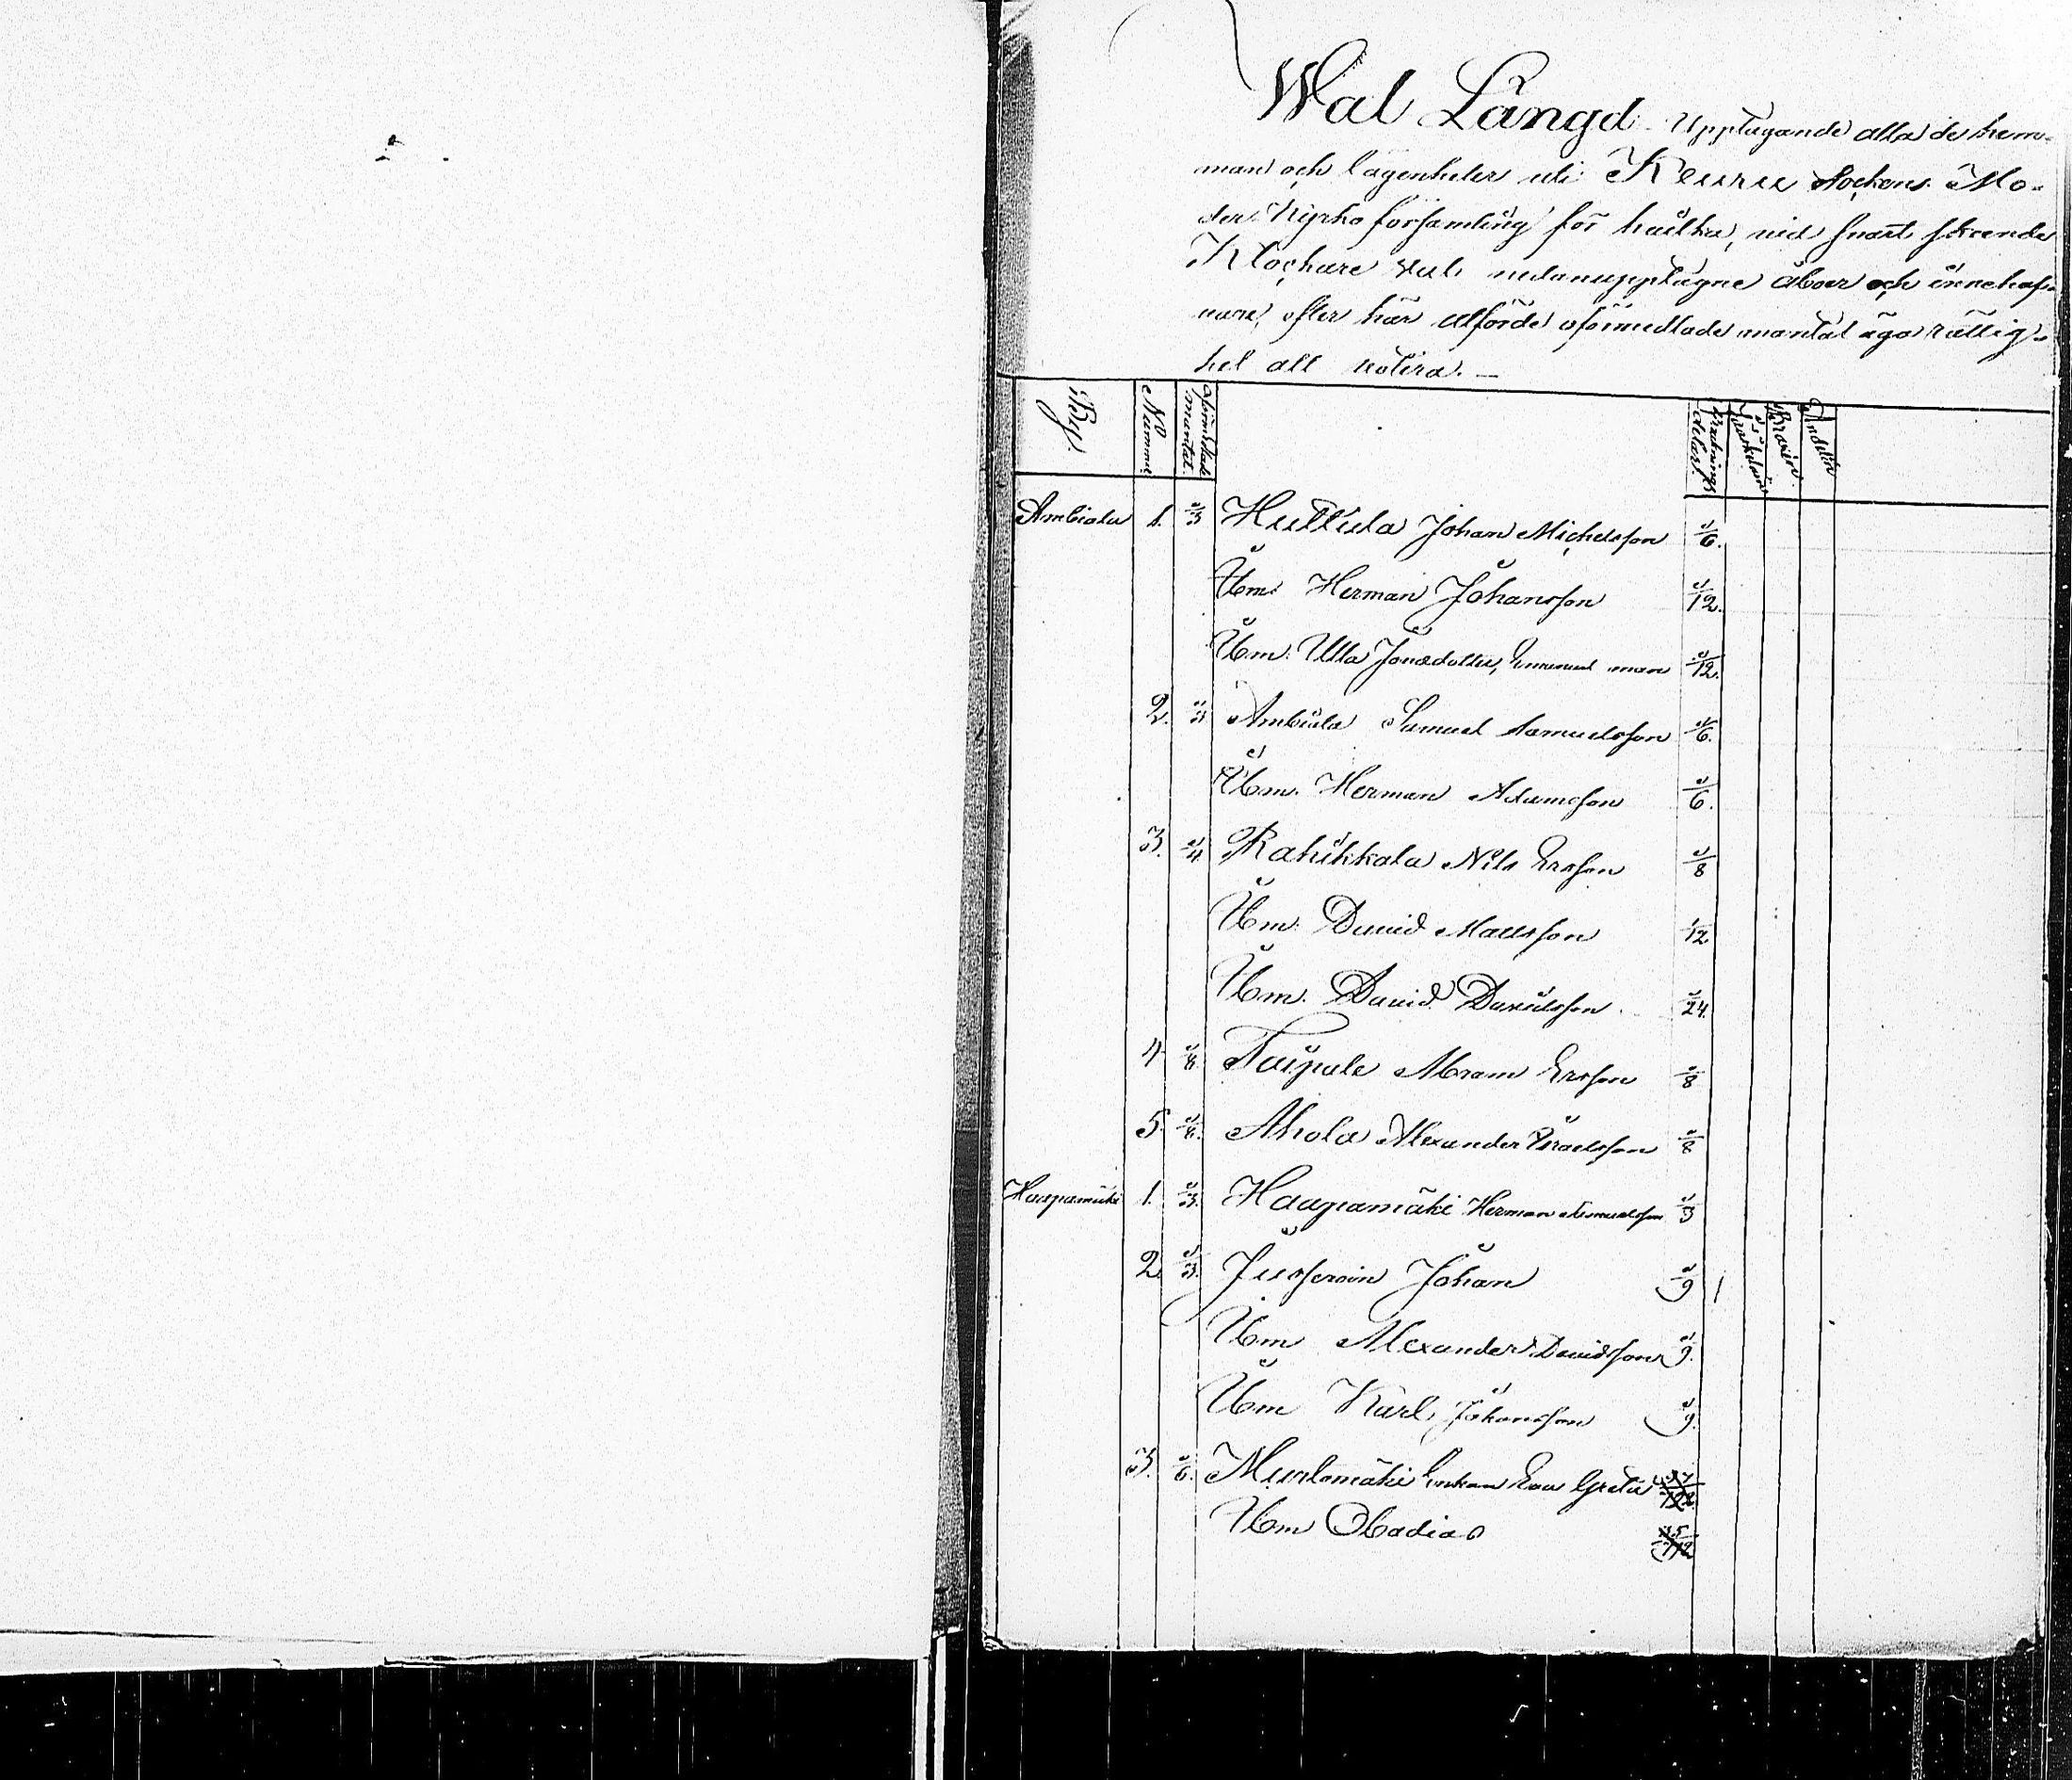 Wal Längd. Upptagande alla de hem-
man och lägenheter uti Keuru Sockens Mo-
der Kyrko församling för hvilka, vid snart skeende
Klockare val, nedanupptagne åboer och innehaf-
vare, efter här utförde oförmedlade mantal äga rättig-
het att votera. —
By. Nummer Oförmedlade mantal. Brukningsdelar. Bravin. Andelin
Ambiala 1. 1/3 Huttula Johan Michelsson 1/6.
Ibm. Herman Johansson 1/12.
Ibm. Ulla Jonaedotter, Emanuel man 1/12.
2. 1/3 Ambiala Samuel Samuelsson 1/6.
Ibm. Herman Adamsson 1/6.
3. 1/4 Rahikkala Nils Ersson 1/8
Ibm. David Mattsson 1/12
Ibm. David Davidsson 1/24.
4 1/8 Taipale Abram Ersson 1/8
5 1/8. Ahola Alexander Israelsson 1/8
Haapamäki 1. 1/3. Haapamäki Herman Samuelsson 1/3
2. 1/3. Jusseroin Johan 1/9 1
Ibm Alexander Davidsson 1/9.
Ibm Karl Johansson 1/9.
3. 1/6. Murtomäki Enkan Eva Greta
Ibm Obadias